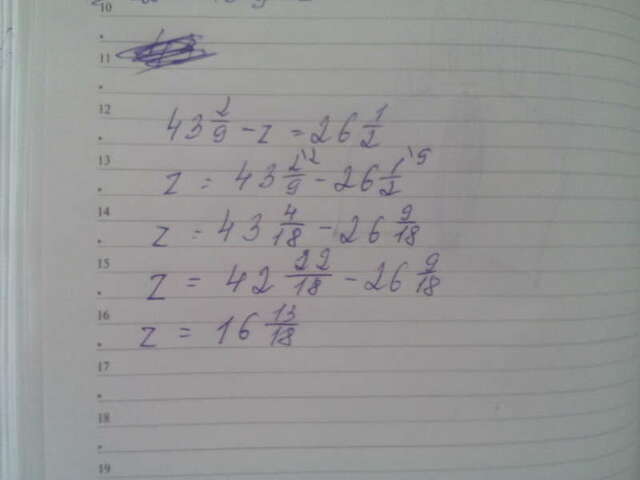 10
11
12
43 2/9 - z = 26 1/2
13
z = 43 2/9 ˋ2 - 26 1/2 ˋ9
14
z = 43 4/18 - 26 9/18
15
z = 42 22/18 - 26 9/18
16
z = 16 13/18
17
18
19